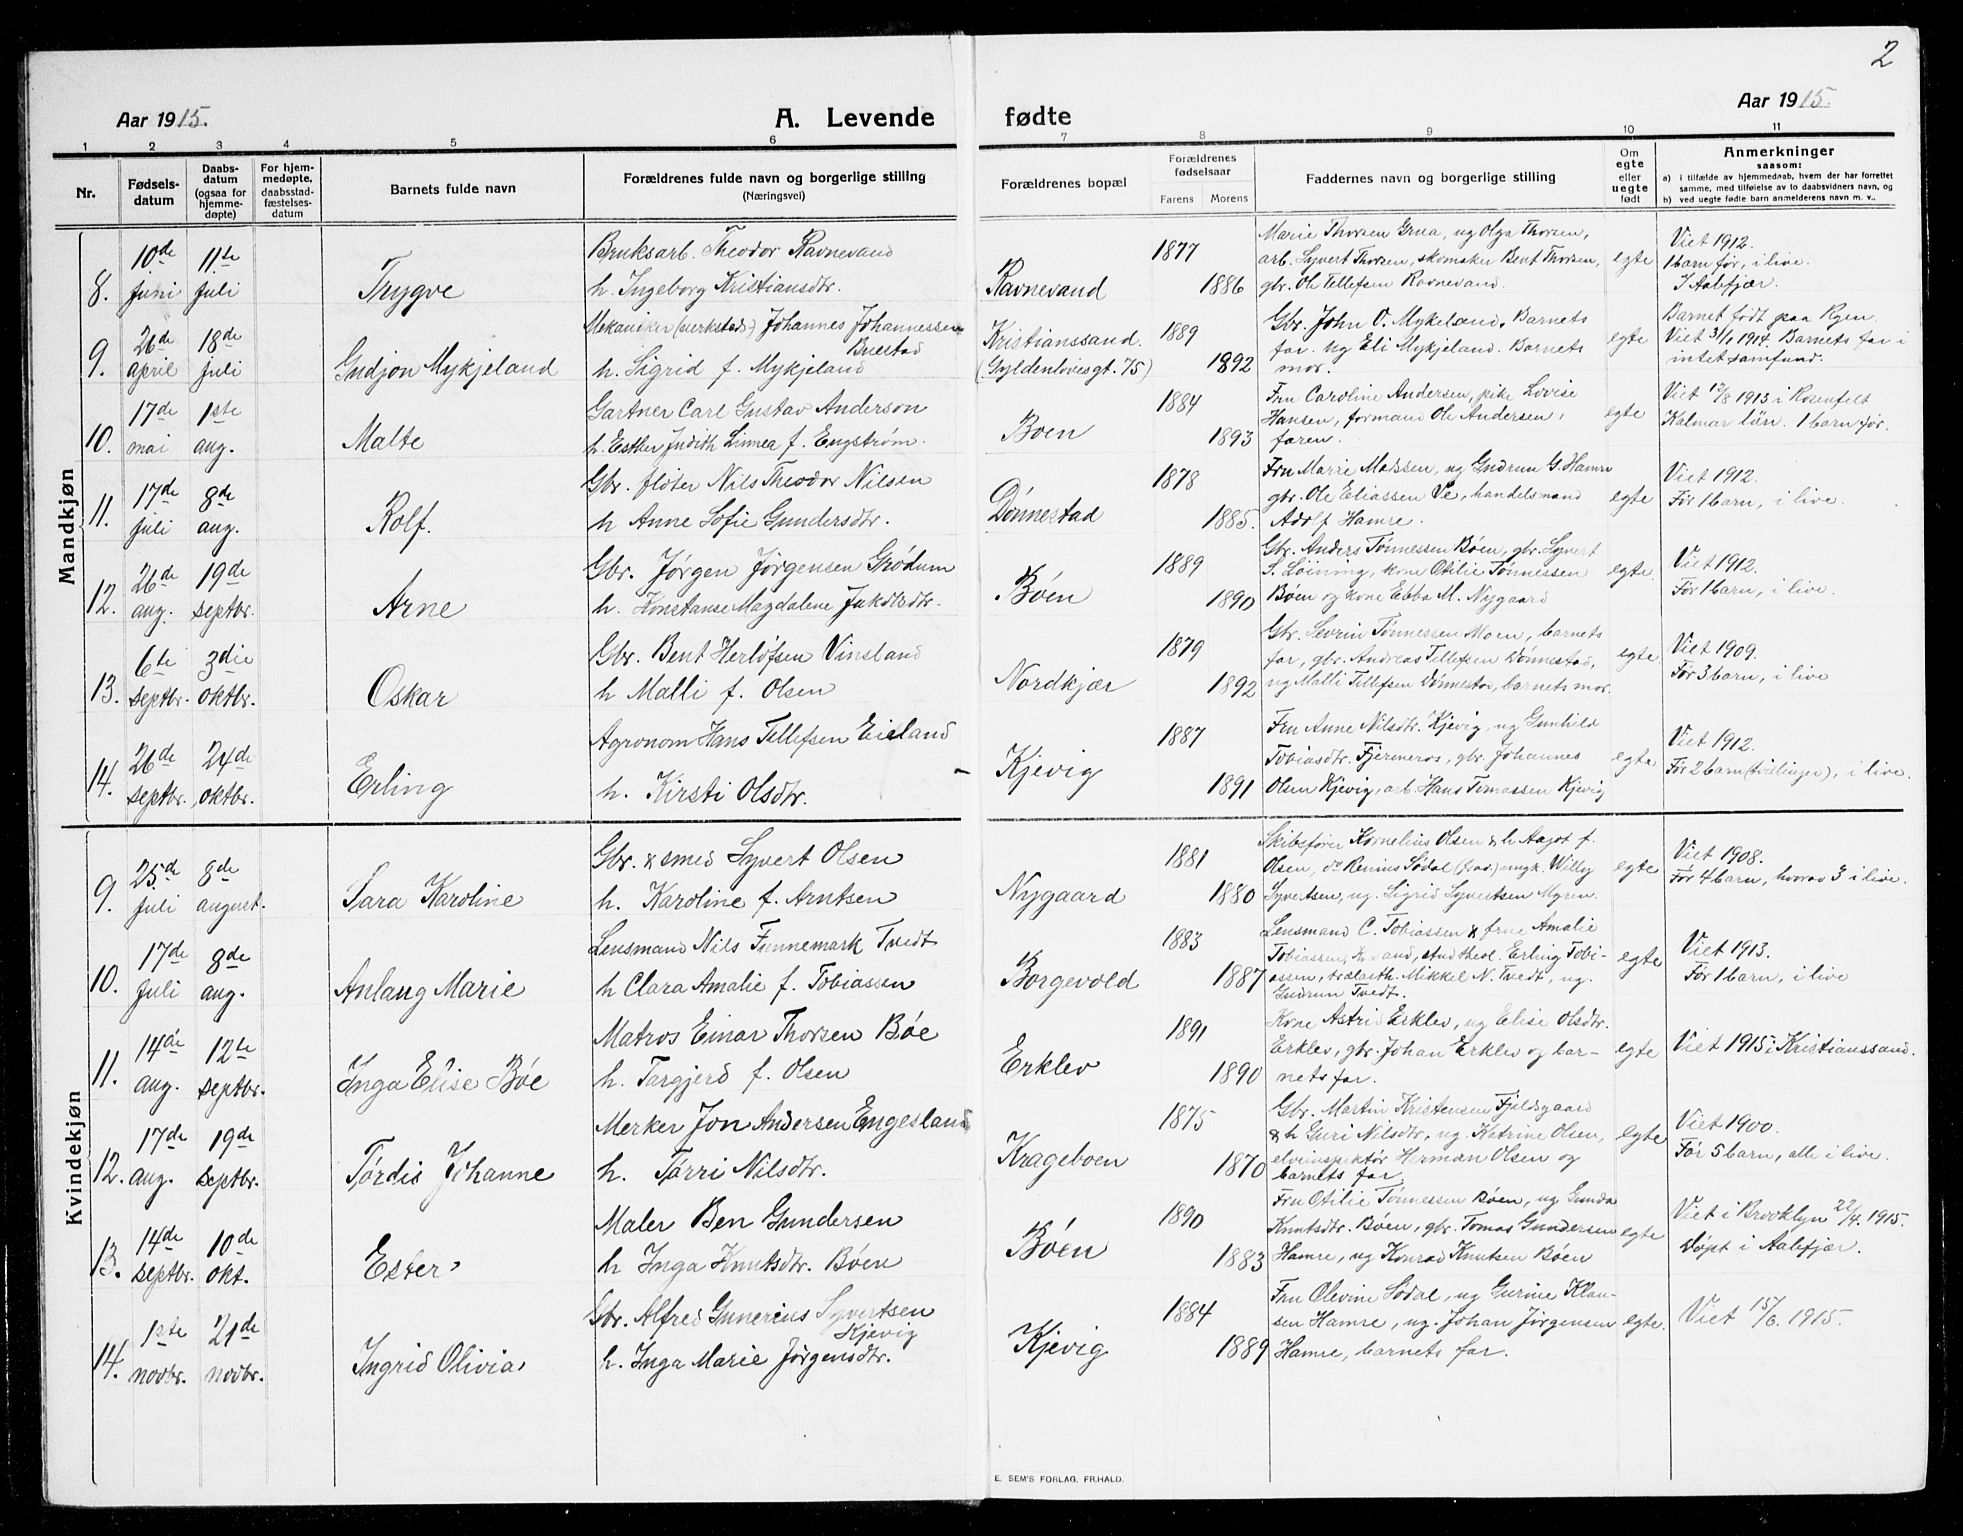 2
Aar 1915.
A. Levende
fødte
Aar 1915.
1 2 3 4 5 6 7 8 9 10 11
Nr.
Fødsels-
datum
Daabs-
datum
(ogsaa for
hjemme-
døpte)
For hjem-
medøpte,
daabsstad-
fæstelses-
datum
Barnets fulde navn
Forældrenes fulde navn og borgerlige stilling
(Næringsvei)
Forældrenes bopæl
Forældrenes
fødselsaar
Farens Morens
Faddernes navn og borgerlige stilling
Om
egte
eller
uegte
født
Anmerkninger
saasom:
a) i tilfælde av hjemmedaab, hvem der har forrettet
samme, med tilføielse av to daabsvidners navn, og
b) ved uegte fødte barn anmelderens navn m. v..
Mandkjøn
8.
10de
juni
11te
juli
Trygve
Bruksarb. Theodor Ravnevand
h. Ingeborg Kristiansdtr.
Ravnevand
1877
1886
Marie Thorsen Grua, ug Olga Thorsen,
arb. Syvert Thorsen, skomaker Bent Thorsen,
gbr. Ole Tellefsen Ravnevand.
egte
Viet 1912.
1 barn før, i live.
I Aalefjær.
9.
26de
april
18de
juli
Gudjon Mykjeland
Mekaniker (verksteds) Johannes Johannessen
Buestad
h. Sigrid f. Mykjeland
Kristianssand.
(Gyldenløvesgt. 75)
1889
1892
Gbr. John O. Mykeland, Barnets
far. ug Eli Mykjeland. Barnets
mor.
egte
Barnet født paa Rygen.
Viet 3/1 1914. Barnets far i
intet samfund.
10.
17de
mai
1ste
aug.
Malte
Gartner Carl Gustav Anderson
h. Esther Judith Linnea f. Engstrøm.
Boen
1884
1893
Fru Caroline Andersen, pike Lovise
Hansen, formand Ole Andersen,
faren.
egte
Viet 17/8 1913 i Rosenfelt
Kalmar län. 1 barn før.
11.
17de
juli
8de
aug.
Rolf.
Gbr. fløter Nils Theodor Nilsen
h Anne Sofie Gundersdtr.
Dønnestad
1878
1885.
Fru Marie Madssen, ug Gudrun G. Hamre
gbr. Ole Eliassen Ve, handelsmand
Adolf Hamre.
egte
Viet 1912.
Før 1 barn, i live.
12.
26de
aug.
19de
septbr.
Arne
Gbr. Jørgen Jørgensen Grødum
h. Konstanse Magdalene Jakobsdtr.
Bøen
1889
1890
Gbr. Anders Tønnessen Bøen, gbr. Syvert
S. Løining, kone Otilie Tønnessen
Bøen og kone Ebba M. Nygaard
egte.
Viet 1912.
Før 1 barn, i live.
13.
6te
septbr.
3die
oktbr.
Oskar
Gbr. Bent Herlofsen Vinsland
h Malli f. Olsen
Nordkjær
1879
1892
Gbr. Sevrin Tønnessen Moen, barnets
far, gbr. Andreas Tellefsen Dønnestad,
ug Malli Tellefsen Dønnestad, barnets mor.
egte.
Viet 1909.
Før 3 barn, i live
14.
26de
septbr.
24de
oktbr.
Erling
Agronom Hans Tellefsen Eieland
h. Kirsti Olsdtr.
Kjevig
1887
1891
Fru Anne Nilsdtr. Kjevig, ug Gunhild
Tobiasdtr. Fjermeros, gbr. Johannes
Olsen Kjevig, arb Hans Tomassen Kjevig
egte
Viet 1912.
Før 2 barn (tvillinger), i live.
Kvindekjøn
9.
25de
juli
8de
august.
Sara Karoline
Gbr. & smed Syvert Olsen
h. Karoline f. Arntsen
Nygaard
1881
1880
Skibsfører Kornelius Olsen & h Aagot f.
Olsen, do Renius Sødal (grad.) ungk. Willy
Syvertsen, ug. Sigrid Syvertsen Myren.
egte
Viet 1908.
Før 4 barn, hvorav 3 i live.
10.
17de
juli
8de
aug.
Anlaug Marie
Lensmand Nils Funnemark Tvedt
h Clara Amalie f. Tobiassen
Borgevold
1883
1887
Lensmand C. Tobiassen & frue Amalie
Tobiassen, Kr.sand, stud theol. Erling Tobi-
assen, trælasth. Mikkel N. Tvedt, ug.
Gudrun Tvedt.
egte
Viet 1913.
Før 1 barn, i live
11.
14de
aug.
12te
septbr.
Inga Elise Bøe
Matros Einar Thorsen Bøe
h. Targjerd f. Olsen
Erklev
1891
1890
Kone Astri Erklev, ug Elise Olsdtr.
Erklev, gbr. Johan Erklev og bar-
nets far.
egte
Viet 1915 i Kristianssand.
12.
17de
aug.
19de
septbr.
Tordis Johanne
Merker Jon Andersen Engesland
h. Tørri Nilsdtr.
Krageboen
1875
1870
Gbr. Martin Kristensen Fjeldsgaard
& h Guri Nilsdtr, ug. Katrine Olsen,
elveinspektør Herman Olsen og
barnets far
egte
Viet 1900.
Før 5 barn, alle i live.
13.
14de
septbr.
10de
okt.
Ester
Maler Ben Gundersen
h Inga Knutsdtr. Bøen
Bøen
1890
1883
Fru Otilie Tønnessen Bøen, ug Gunda
Knutsdtr. Bøen, gbr. Tomas Gundersen
Hamre, ug Konrad Knutsen Bøen
egte
Viet i Brooklyn 22/4. 1915.
Døpt i Aalefjær.
14.
1ste
novbr.
21de
novbr.
Ingrid Olivia
Gbr. Alfred Gunerius Syvertsen
Kjevig
h. Inga Marie Jørgensdtr.
Kjevig
1884
1889
Fru Olevine Sødal, ug Gurine Klau-
sen Hamre, ug. Johan Jørgensen
Hamre, barnets far.
egte.
Viet 15/6. 1915.
E. SEM'S FORLAG, FR.HALD.